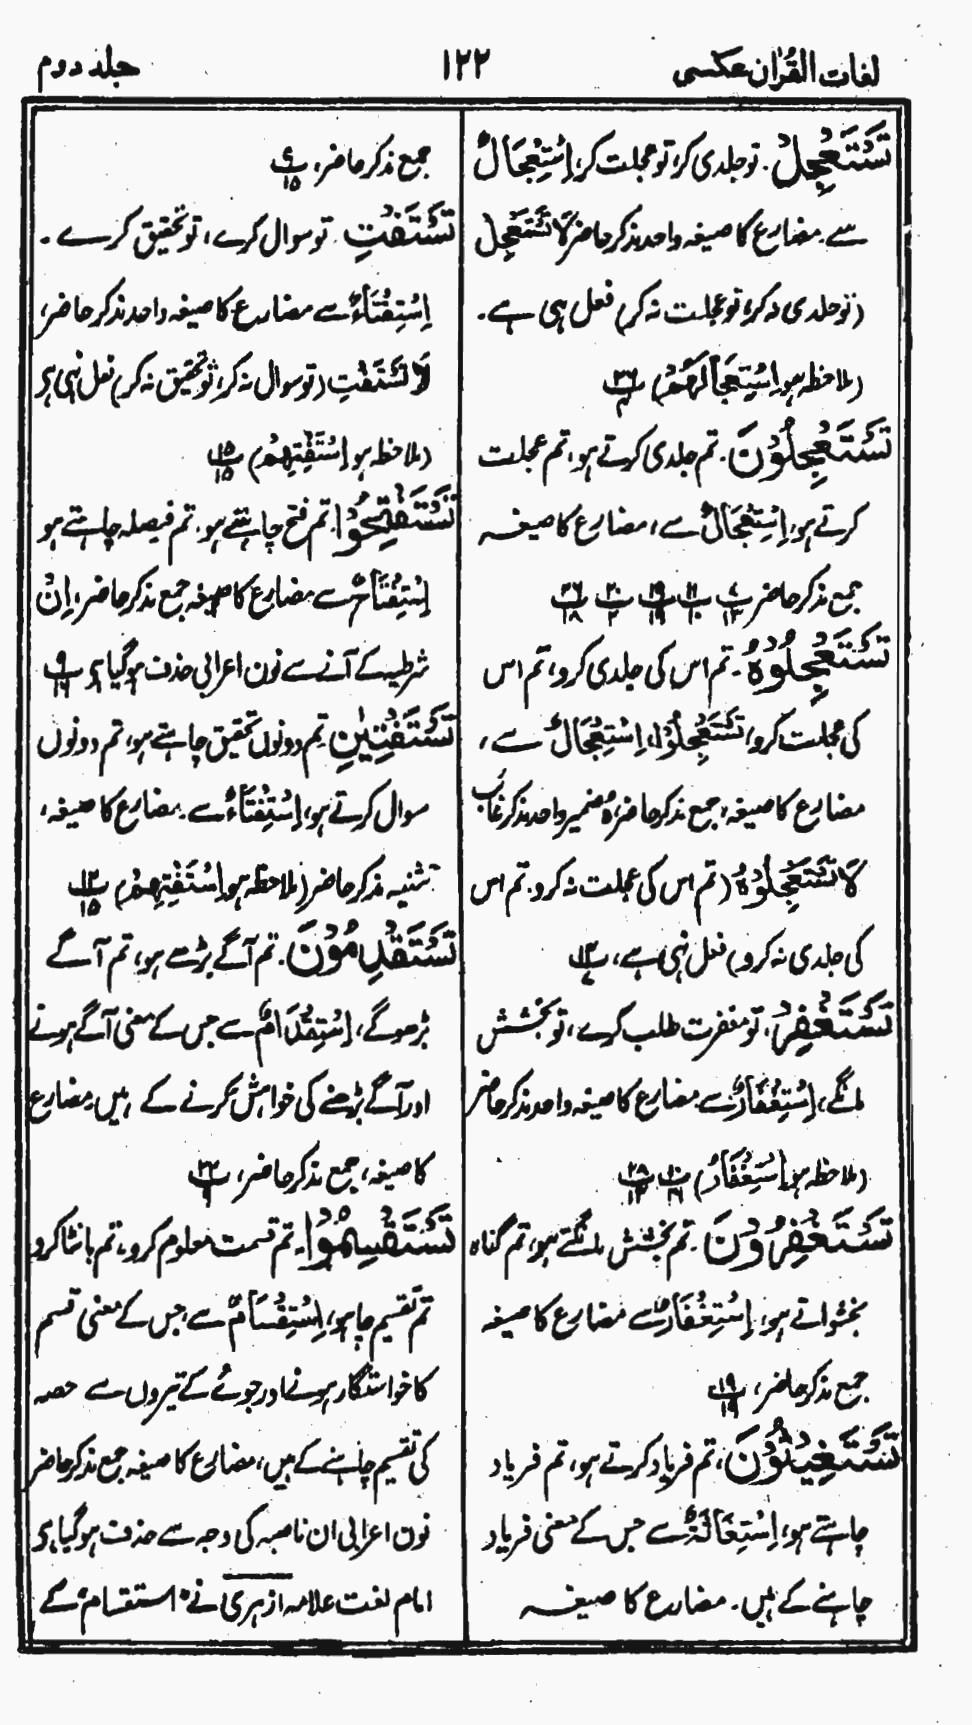 لغات القرآن عکسی
۱۲۲
جلد دوم
تَسْتَعْجِلْ. تو جلدی کر، تو عجلت کر، اِسْتِعْجَالٌ
سے مضارع کا صیغہ واحد مذکر حاضر لَا تَسْتَعْجِلْ
(تو جلدی نہ کر، تو عجلت نہ کر) فعل نہی ہے۔
(ملاحظہ ہو اِسْتِعْجَالَهُمْ) پ۲۶/۴
تَسْتَعْجِلُوْنَ. تم جلدی کرتے ہو، تم عجلت
کرتے ہو، اِسْتِعْجَالٌ سے، مضارع کا صیغہ
جمع مذکر حاضر پ۷/۱۳ پ۱۱/۱۰ پ۱۹/۱۹ پ۲۰/۲ پ۲۶/۱۸
تَسْتَعْجِلُوْهُ. تم اس کی جلدی کرو، تم اس
کی عجلت کرو، تَسْتَعْجِلُوْا، اِسْتِعْجَالٌ سے،
مضارع کا صیغہ، جمع مذکر حاضر، ہُ ضمیر واحد مذکر غائب
لَا تَسْتَعْجِلُوْهُ (تم اس کی عجلت نہ کرو۔ تم اس
کی جلدی نہ کرو) فعل نہی ہے، پ۱۴/۷
تَسْتَغْفِرْ، تو مغفرت طلب کرے، تو بخشش
مانگے، اِسْتِغْفَارٌ سے مضارع کا صیغہ واحد مذکر حاضر
(ملاحظہ ہو اِسْتِغْفَارُ) پ۱۰/۱۶ پ۲۸/۱۳
تَسْتَغْفِرُوْنَ. تم بخشش مانگتے ہو، تم گناہ
بخشواتے ہو، اِسْتِغْفَارٌ سے مضارع کا صیغہ
جمع مذکر حاضر، پ۱۹/۱۹
تَسْتَغِيْثُوْنَ، تم فریاد کرتے ہو، تم فریاد
چاہتے ہو، اِسْتِغَاثَةٌ سے جس کے معنی فریاد
چاہنے کے ہیں۔ مضارع کا صیغہ
جمع مذکر حاضر، پ۹/۱۵
تَسْتَفْتِ. تو سوال کرے، تو تحقیق کرے۔
اِسْتِفْتَاءٌ سے مضارع کا صیغہ واحد مذکر حاضر،
لَا تَسْتَفْتِ (تو سوال نہ کر، تو تحقیق نہ کر) فعل نہی ہے
(ملاحظہ ہو اِسْتَفْتِهِمْ) پ۱۵/۱۵
تَسْتَفْتِحُوْا. تم فتح چاہتے ہو. تم فیصلہ چاہتے ہو
اِسْتِفْتَاحٌ سے مضارع کا صیغہ جمع مذکر حاضر، اِنْ
شرطیہ کے آنے سے نون اعرابی حذف ہو گیا ہے پ۹/۱۶
تَسْتَفْتِيٰنِ. تم دونوں تحقیق چاہتے ہو، تم دونوں
سوال کرتے ہو، اِسْتِفْتَاءٌ سے. مضارع کا صیغہ،
تثنیہ مذکر حاضر (ملاحظہ ہو اِسْتَفْتِهِمْ) پ۱۲/۱۵
تَسْتَقْدِمُوْنَ. تم آگے بڑھے ہو، تم آگے
بڑھو گے، اِسْتِقْدَامٌ سے جس کے معنی آگے ہونے
اور آگے بڑھنے کی خواہش کرنے کے ہیں. مضارع
کا صیغہ، جمع مذکر حاضر، پ۲۲/۹
تَسْتَقْسِمُوْا. تم قسمت معلوم کرو، تم بانٹا کرو
تم تقسیم چاہو، اِسْتِقْسَامٌ سے، جس کے معنی قسم
کا خواستگار ہونے اور جوئے کے تیروں سے حصہ
کی تقسیم چاہنے کے ہیں، مضارع کا صیغہ جمع مذکر حاضر
نون اعرابی ان ناصبہ کی وجہ سے حذف ہو گیا ہے
امام لغت علامہ ازہری نے "استقسام" کے